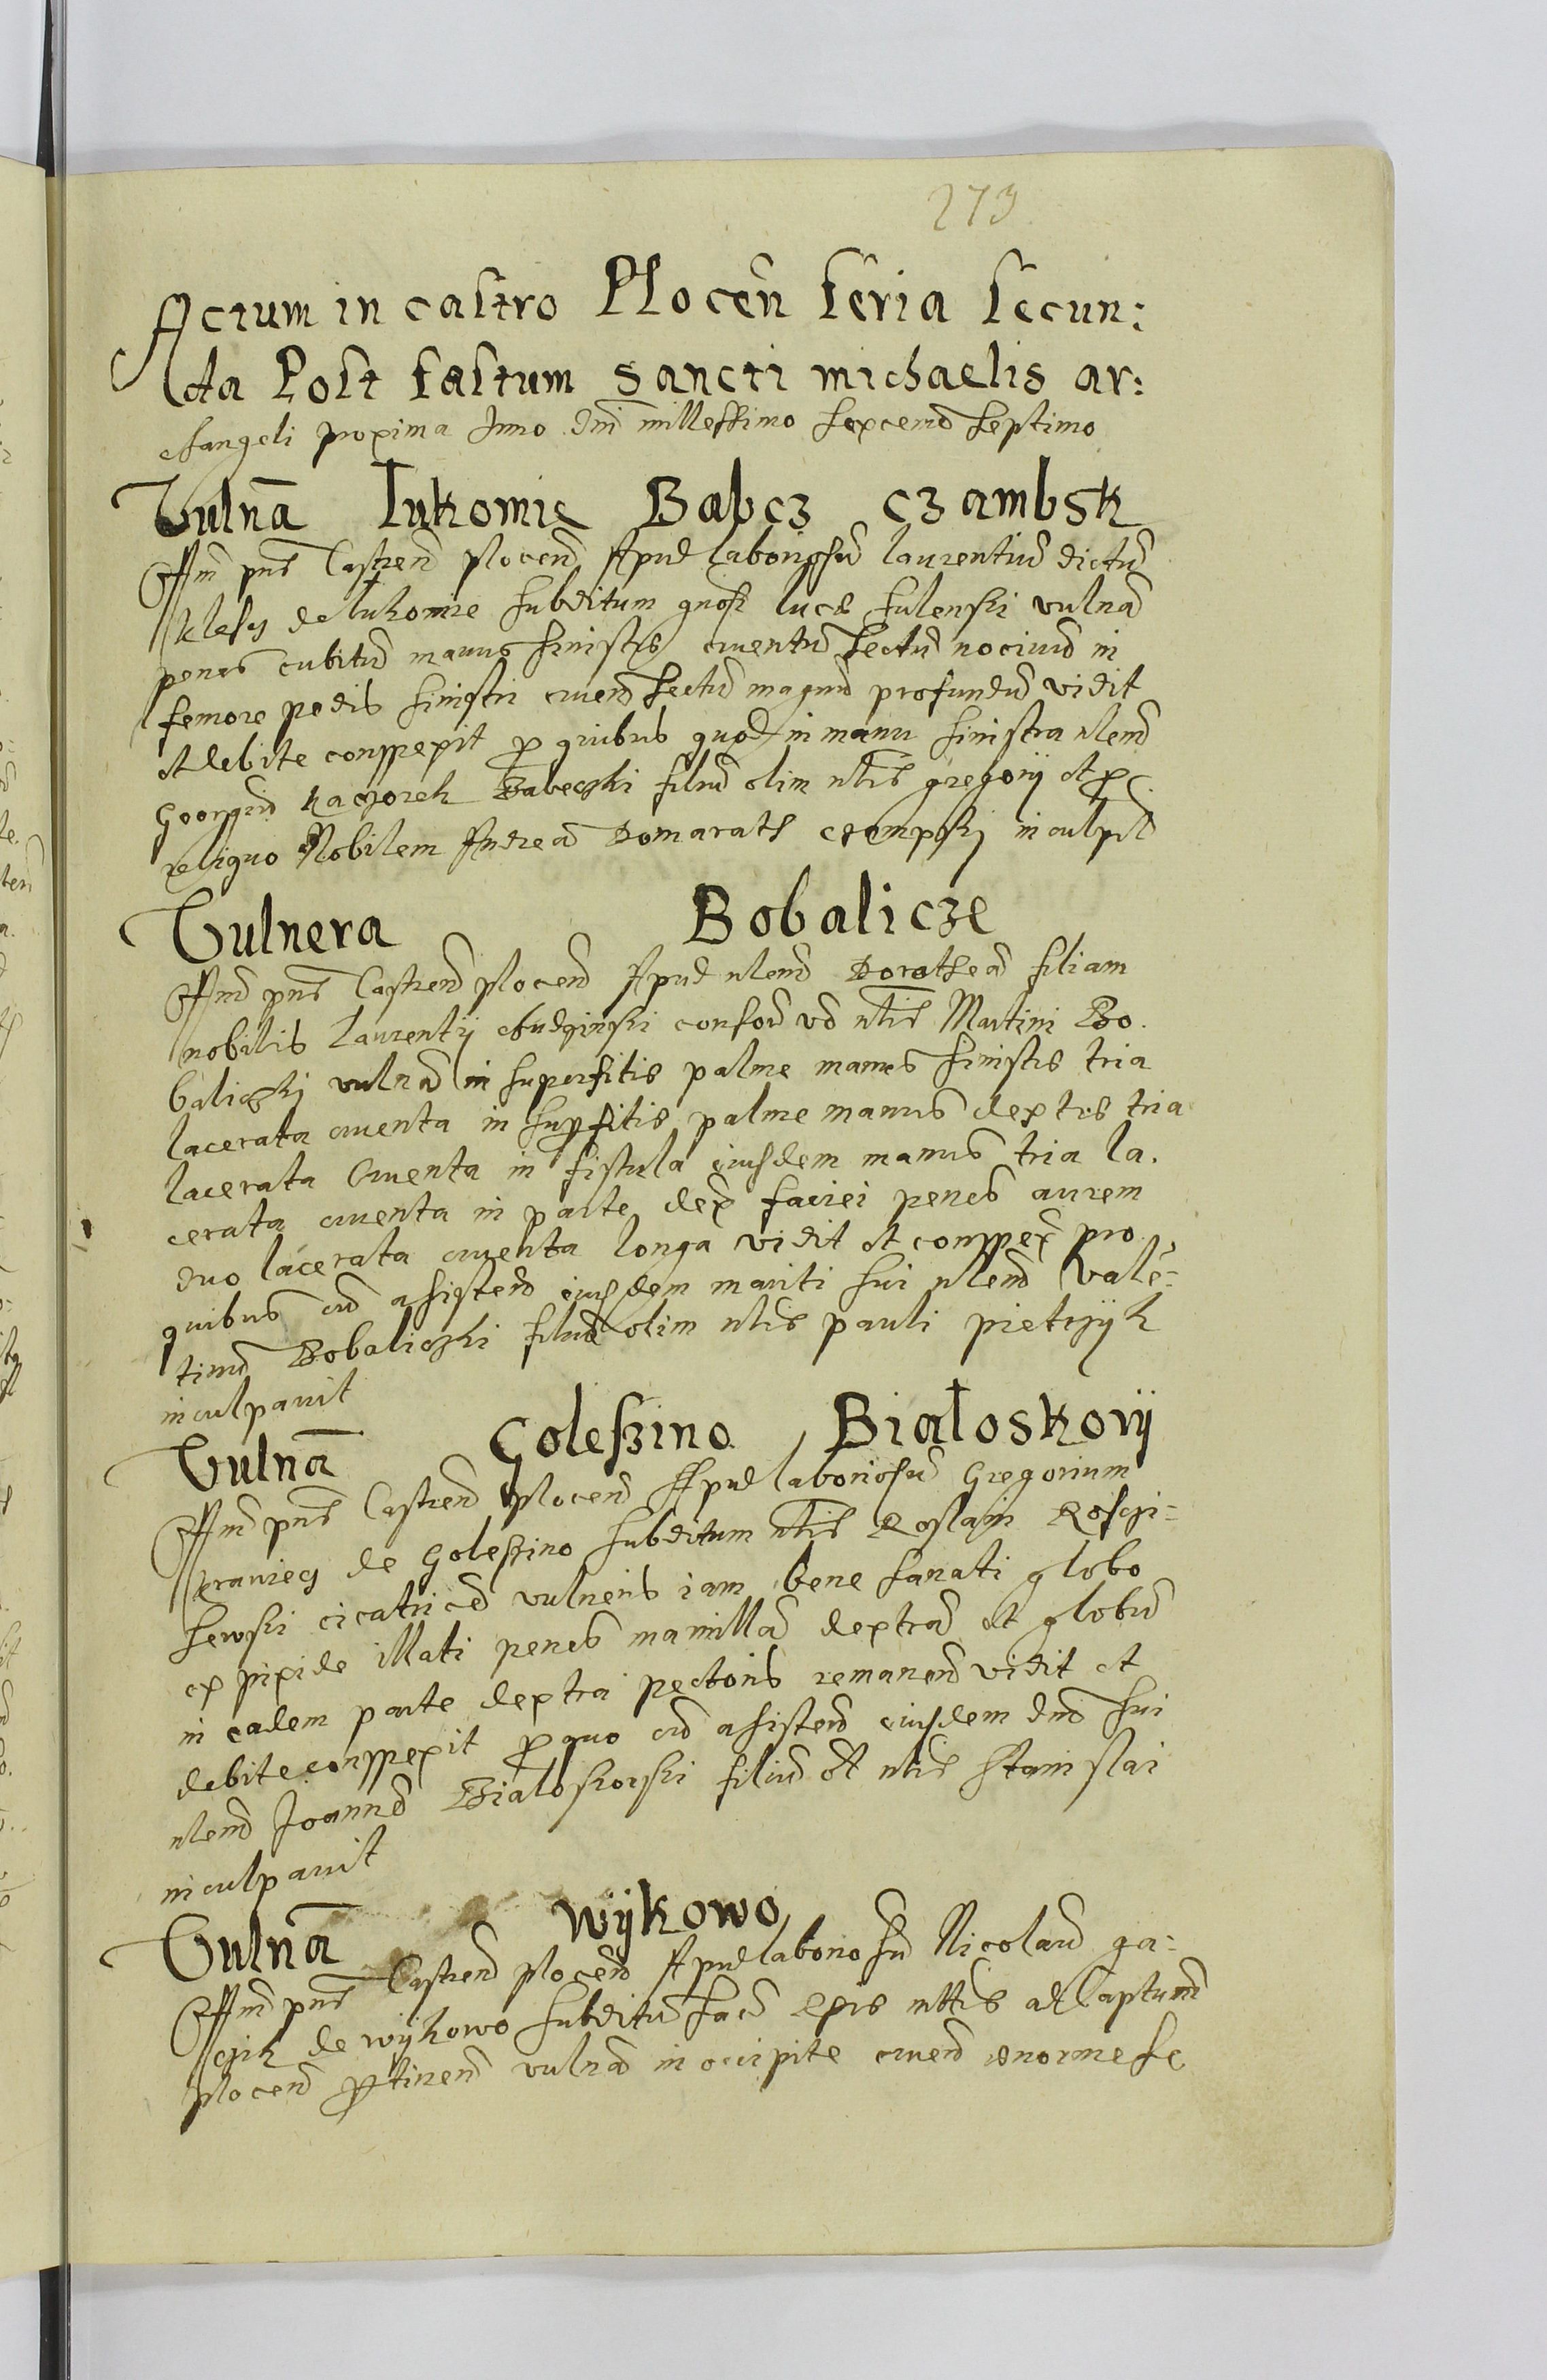 273
Actum in castro Plocen feria secun:
da Post festum Sancti michaelis ar:
changeli proxima Anno Dni millessimo sexcend septimo
Vulna Łukomie Babcz czambsk
Offm pns Castren plocen Apud laboriosu laurentiu dictu
klesz de lukomie subditum gnosi luce sulenski vulna
penes cubitu manus sinistre cruentu sectu nociuu in
femore pedis sinistri cruen sectu magnu profundu vidit
et debite conspexit p quibus quod in manu sinistra nlem
Georgiu kaczorek Babeczki filiu olim nlis gregorii et p
reliquo Nobilem Andrea Domarath czempski inculpt
Vulnera Bobalicze
Offm pns Castren plocen Apud nlem Dorothea filiam
nobilis Laurentij Chudzinski consor vo nlis Martini Bo.
baliczki vulna in superfitie palme manus sinistre tria
lacerata cruenta in supfitie palme manus dextre tria
lacerata Cruenta in fistula eiusdem manus tria la.
cerata cruenta in parte dex faciei penes aurem
duo lacerata cruenta longa vidit et conspex pro
quibus cu asisten eiusdem mariti sui nlem Vale-
tinu Bobaliczki filiu olim nlis pauli pietrzyk
inculpauit
Vulna Goleszino Białoskorij
Offm pns Castren plocen Apud laboriosu Gregorium
krawiecz de Goleszino subditum nlis Roslain Rosczi-
szewski cicatrice vulneris iam bene sanati globo
ex pixide illati penes mamilla dextra et globu
in eadem parte dextra pectoris remanen vidit et
debite conspexit p quo cu asisten eiusdem dni sui
nlem Joanne Bialoskorski filiu ol nlis Stanislai
inculpauit
Vulna Wijkowo
Offm pns Castren plocen Apud laboriosu Nicolau ga-
czik de wijkowo subditu sac epis mltis ad Captum
plocen ptinen vulna in occipite cruen enorme se